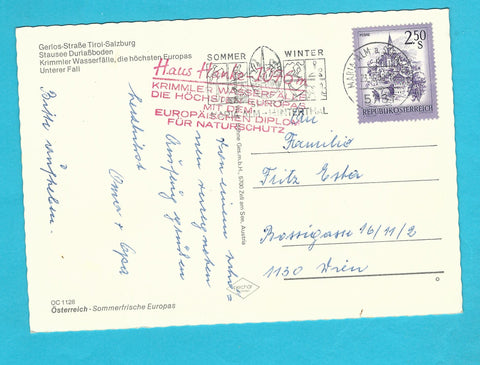 Gerlos-Straße Tirol-Salzburg
Stausee Durlaßboden
Krimmler Wasserfälle, die höchsten Europas
Unterer Fall
SOMMER WINTER
2.50
S
REPUBLIK ÖSTERREICH
Haus Hanke
KRIMMLER WASSERFÄLLE
DIE HÖCHSTEN EUROPAS
MIT DEM
EUROPÄISCHEN DIPLOM
FÜR NATURSCHUTZ
MARIA ALM
An
Familie
Fritz Ester
Rossigasse 16/11/2
1130 Wien
Von einem
Ausflug grüßen
herzlichst
Oma + Opa
Bitte aufheben.
Ges.m.b.H., 5700 Zell am See, Austria
OC 1128
Österreich - Sommerfrische Europas